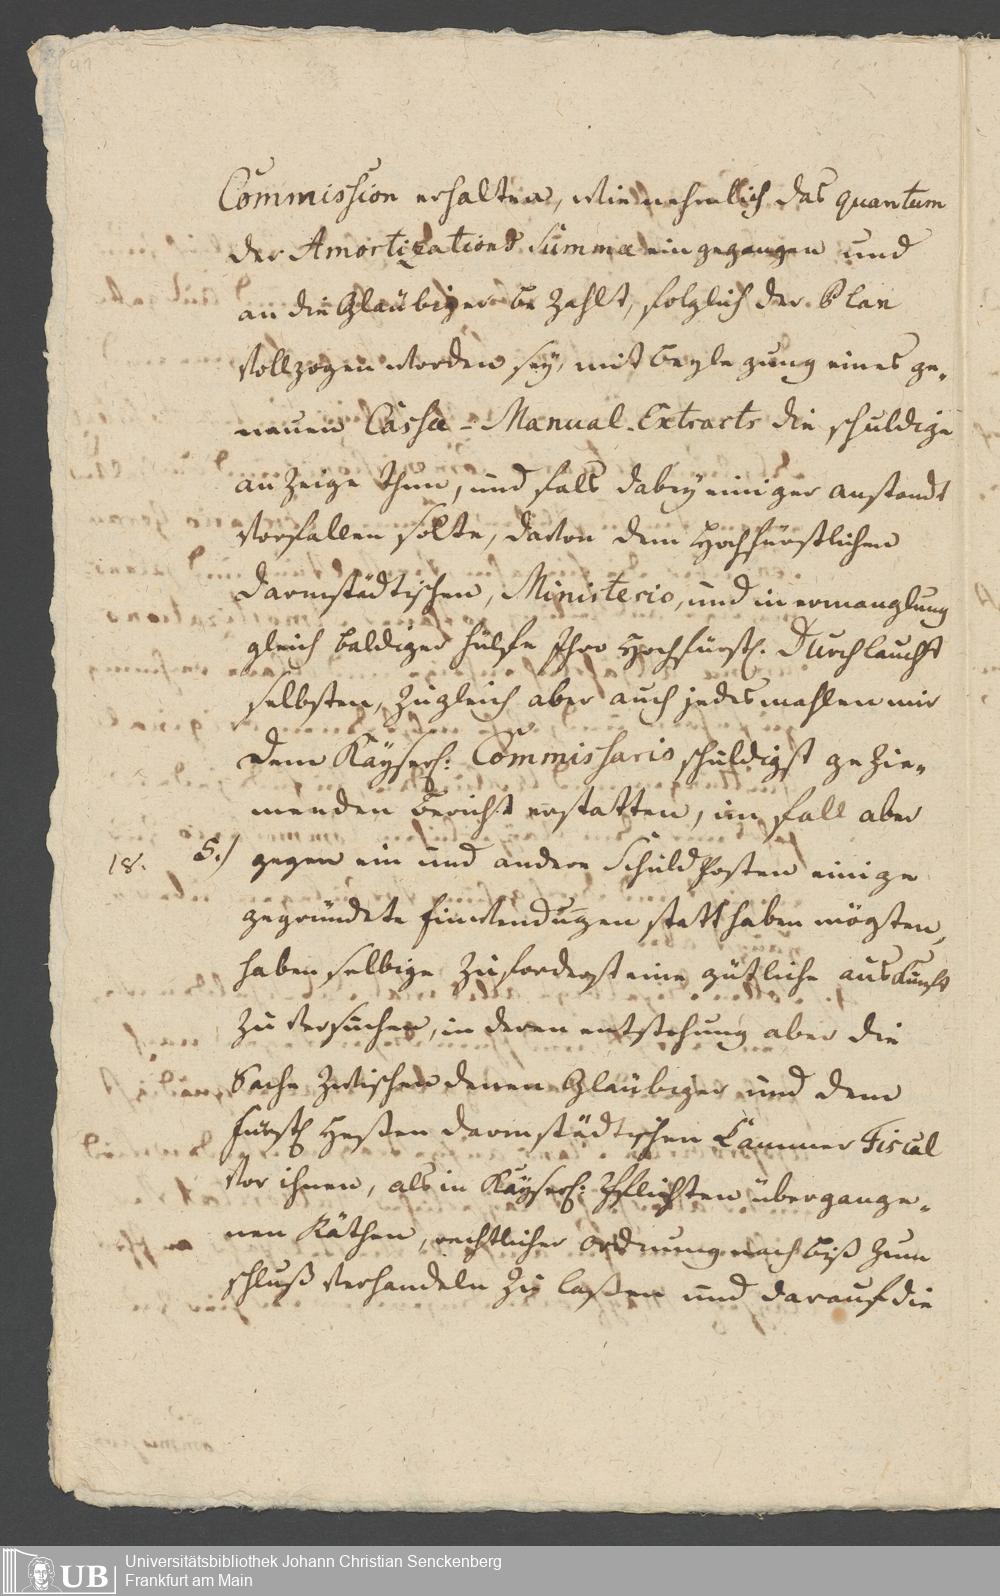 41
Commission erhalten, wie nehmlich das quantum
der Amortizations Summa eingegangen und
an die Gläubiger bezahlt, folglich der Plan
vollzogen worden sey, mit beylegung eines ge„
nauen Cassa-Manual-Extracts die schuldige
anzeige thun, und fals dabey einiger anstandt
vorfallen solte, davon dem Hochfürstlichen
Darmstädtischen, Ministerio, und in ermanglung
gleich baldiger hülfe Ihro Hochfürstl. Durchlaucht
selbsten, zugleich aber auch jedesmahlen mir
dem Kayserl: Commissario schuldigst gezie„
menden bericht erstatten, im fall aber
18. 5./ gegen ein und andere Schuld Posten einige
gegründete Einwendugen statt haben mögten,
haben selbige zuforderst eine gütliche auskunft
zu versuchen, in deren entstehung aber die
Sache zwischen denen Gläubiger und dem
Fürstl Heßen Darmstädtischen Cammer Fiscal
vor ihnen, als in Kayserl: Pflichten übergange„
nen Räthen, rechtlicher ordnung nach biß zum
schluß verhandeln zu laßen und darauf die
UB Universitätsbibliothek Johann Christian Senckenberg
Frankfurt am Main